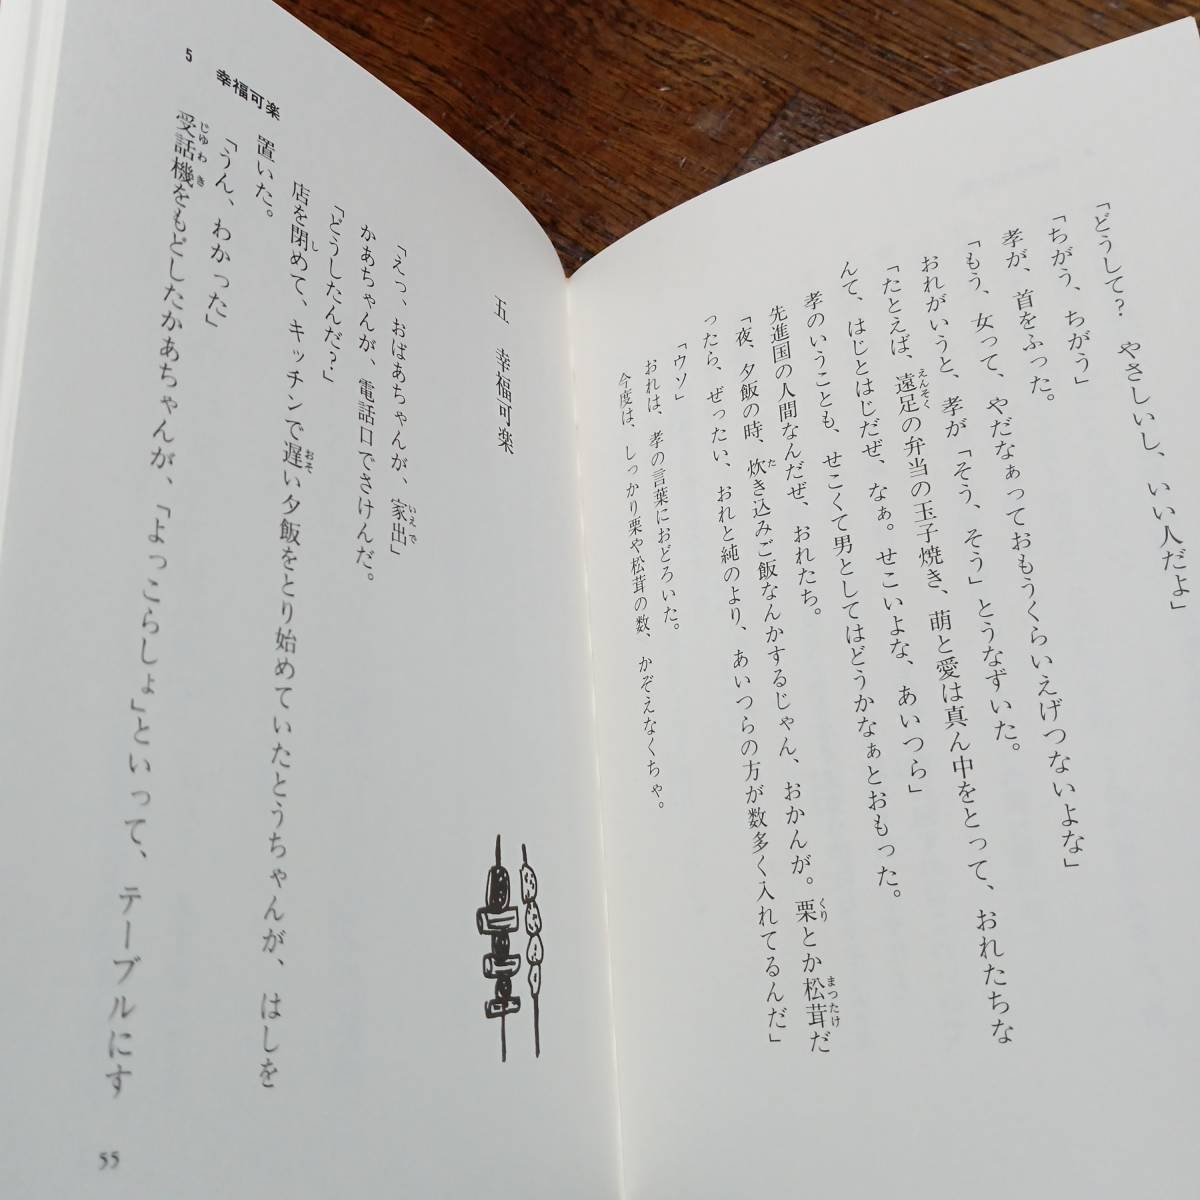 「どうして？　やさしいし、いい人だよ」
「ちがう、ちがう」
孝が、首をふった。
「もう、女って、やだなぁっておもうくらいえげつないよな」
おれがいうと、孝が「そう、そう」とうなずいた。
「たとえば、遠足の弁当の玉子焼き、萌と愛は真ん中をとって、おれたちな
んて、はじとはじだぜ、なぁ。せこいよな、あいつら」
孝のいうことも、せこくて男としてはどうかなぁとおもった。
先進国の人間なんだぜ、おれたち。
「夜、夕飯の時、炊き込みご飯なんかするじゃん、おかんが。栗とか松茸だ
ったら、ぜったい、おれと純のより、あいつらの方が数多く入れてるんだ」
「ウソ」
おれは、孝の言葉におどろいた。
今度は、しっかり栗や松茸の数、かぞえなくちゃ。
五　幸福可楽
「えっ、おばあちゃんが、家出」
かあちゃんが、電話口でさけんだ。
「どうしたんだ？」
店を閉めて、キッチンで遅い夕飯をとり始めていたとうちゃんが、はしを
置いた。
「うん、わかった」
受話機をもどしたかあちゃんが、「よっこらしょ」といって、テーブルにす
5　幸福可楽
55